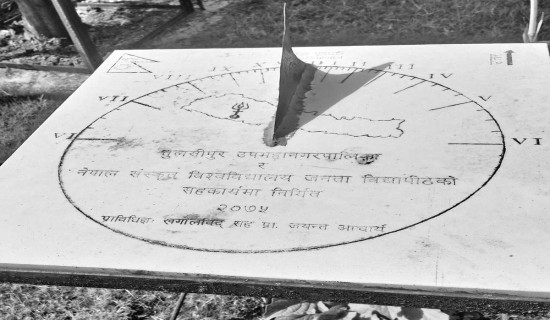 VI VII VIII IV V VI
तुलसीपुर उपमहानगरपालिका
र
नेपाल संस्कृत विश्वविद्यालय जनता विद्यापीठको
सहकार्यमा निर्मित
२०७५
प्राविधिकः खगोलविद् सह प्रा. जयन्त आचार्य